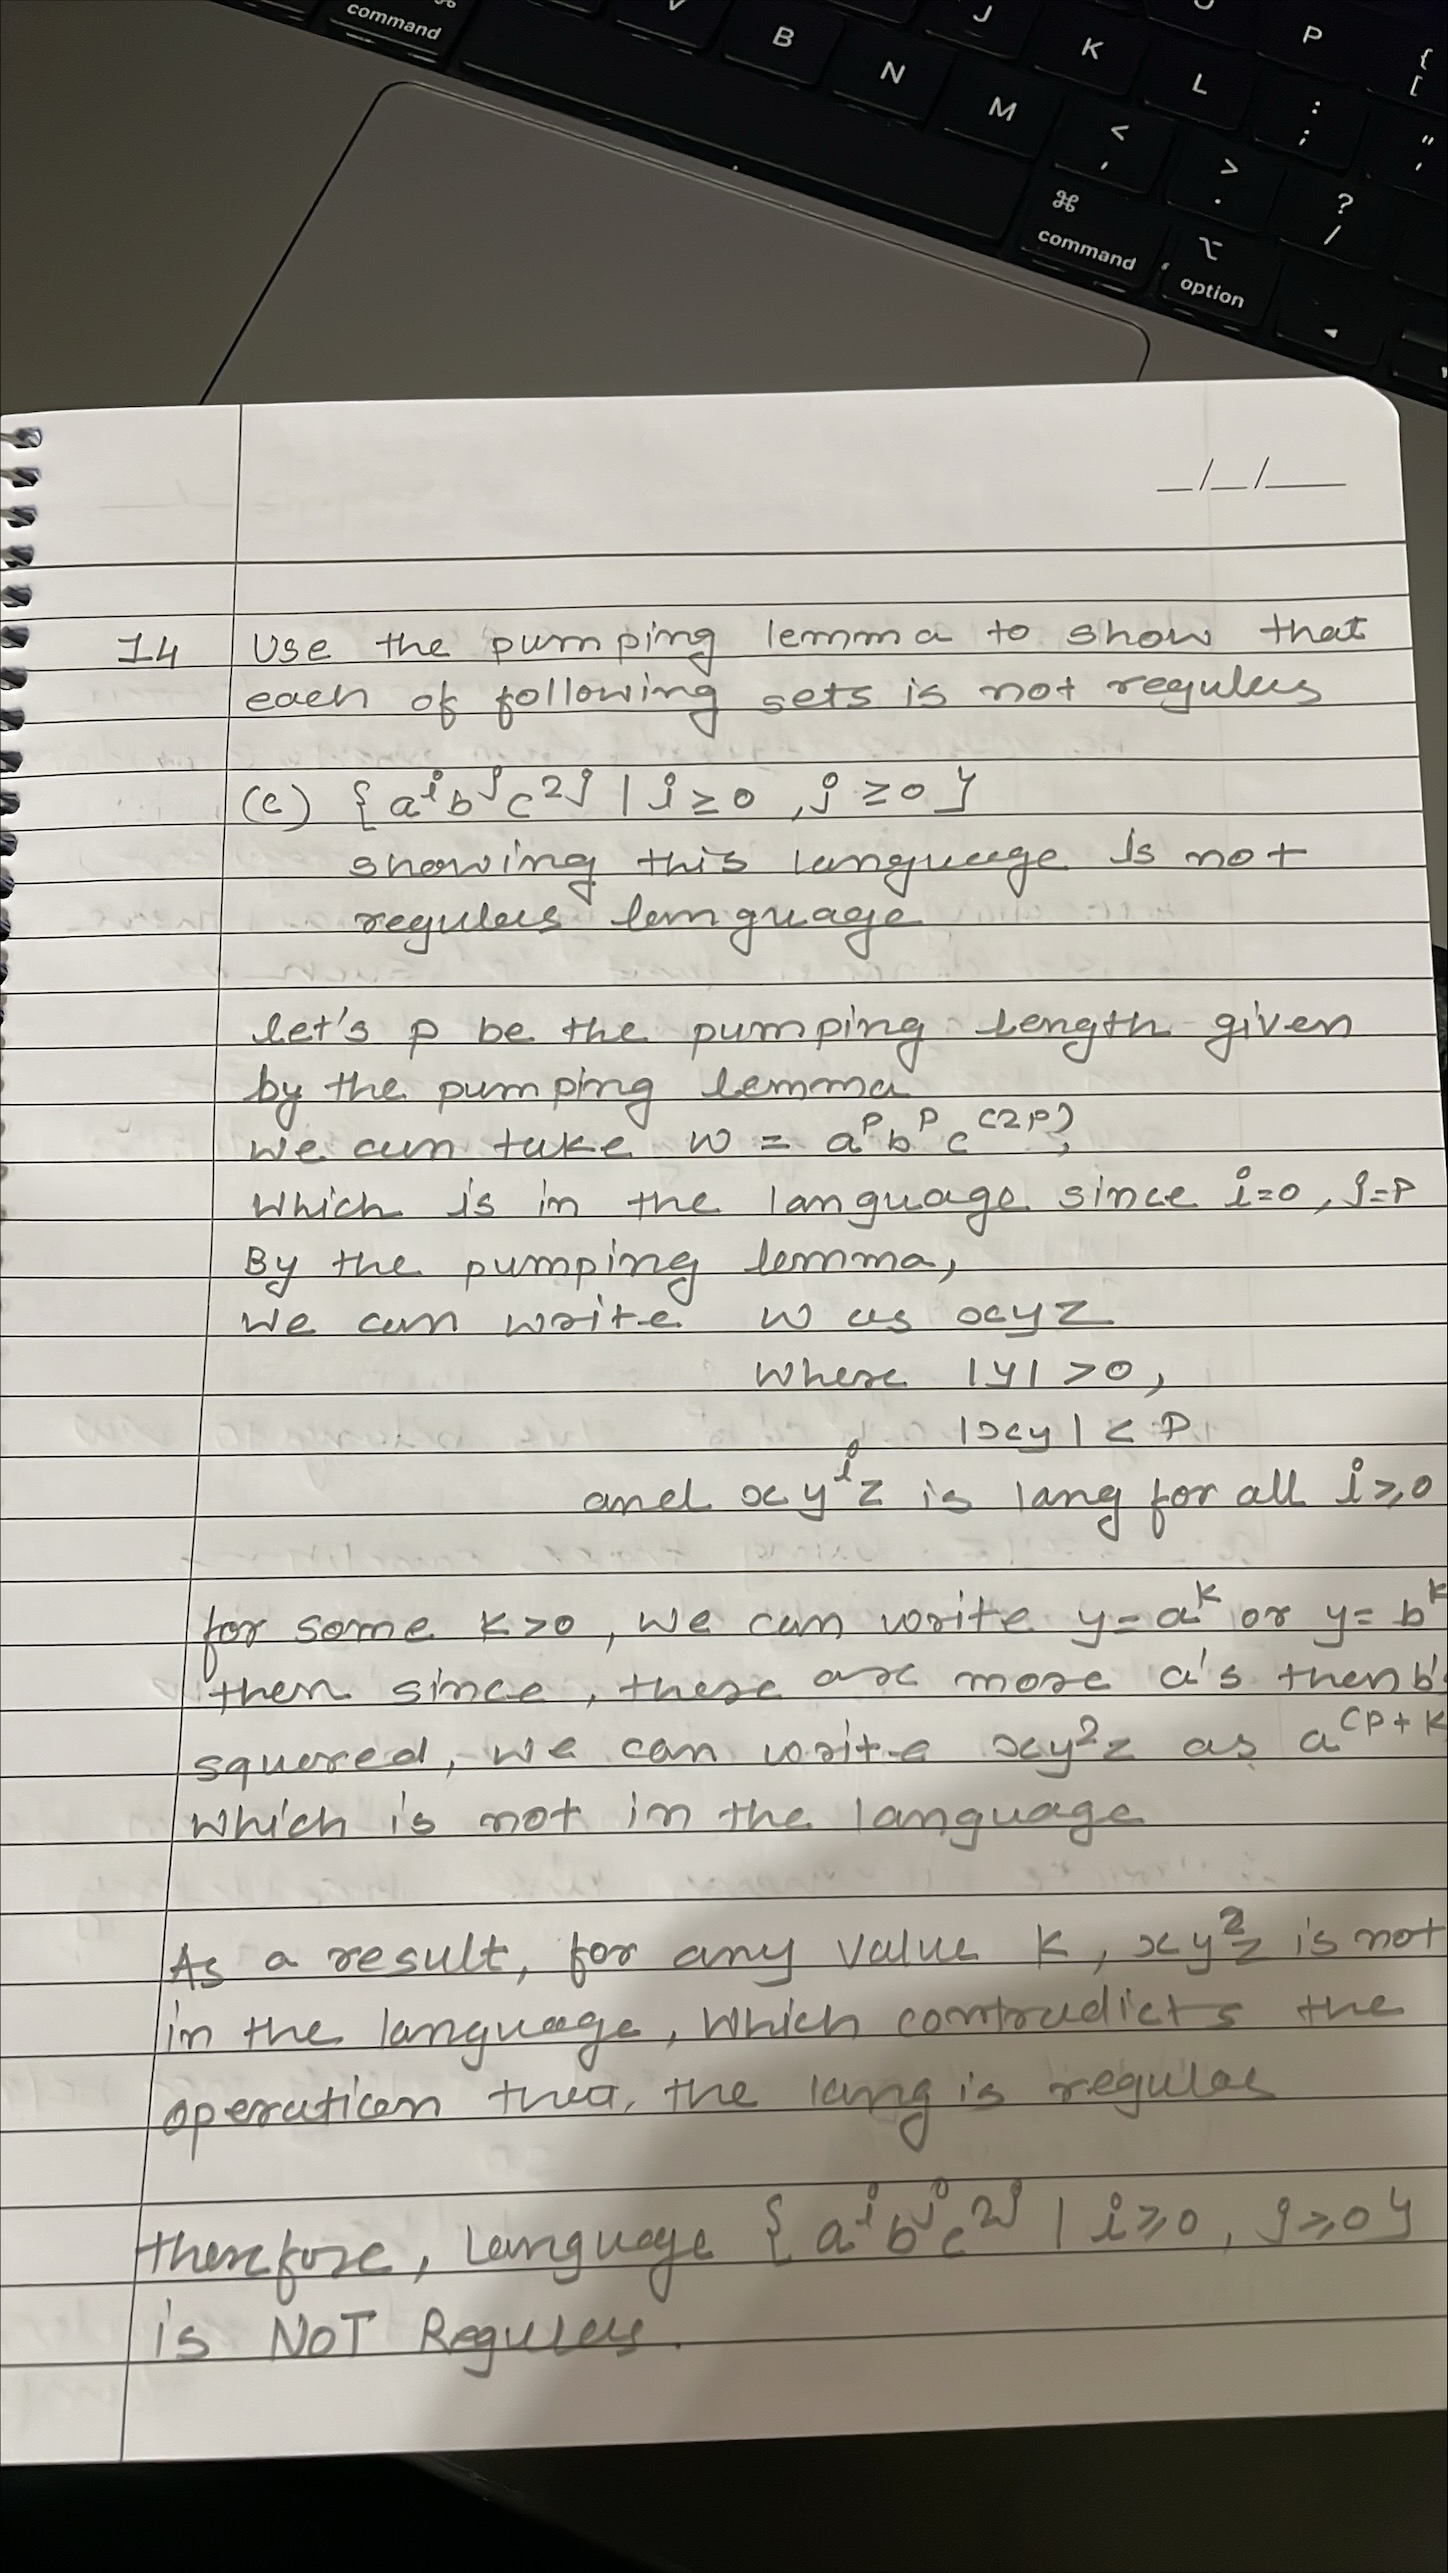 command
V
B
N
M
J
K
L
P
{
[
:
;
"
'
<
,
>
.
?
/
⌘
command
⌥
option
_/_/___
14 Use the pumping lemma to show that
each of following sets is not regular
(c) {aⁱbʲc²ʲ | i ≥ 0, j ≥ 0}
showing this language is not
regular language
let's p be the pumping length given
by the pumping lemma
we can take w = aᵖbᵖc⁽²ᵖ⁾,
which is in the language since i=0, j=p
By the pumping lemma,
we can write w as xyz
where |y| > 0,
|xy| < p
and xyⁱz is lang for all i ≥ 0
for some k>0, we can write y=aᵏ or y=bᵏ
then since, there are more a's then b's
squared, we can write xy²z as a⁽ᵖ⁺ᵏ
which is not in the language
As a result, for any value k, xy²z is not
in the language, which contradicts the
operation that the lang is regular
therefore, Language {aⁱbʲc²ʲ | i ≥ 0, j ≥ 0}
is NOT Regular.